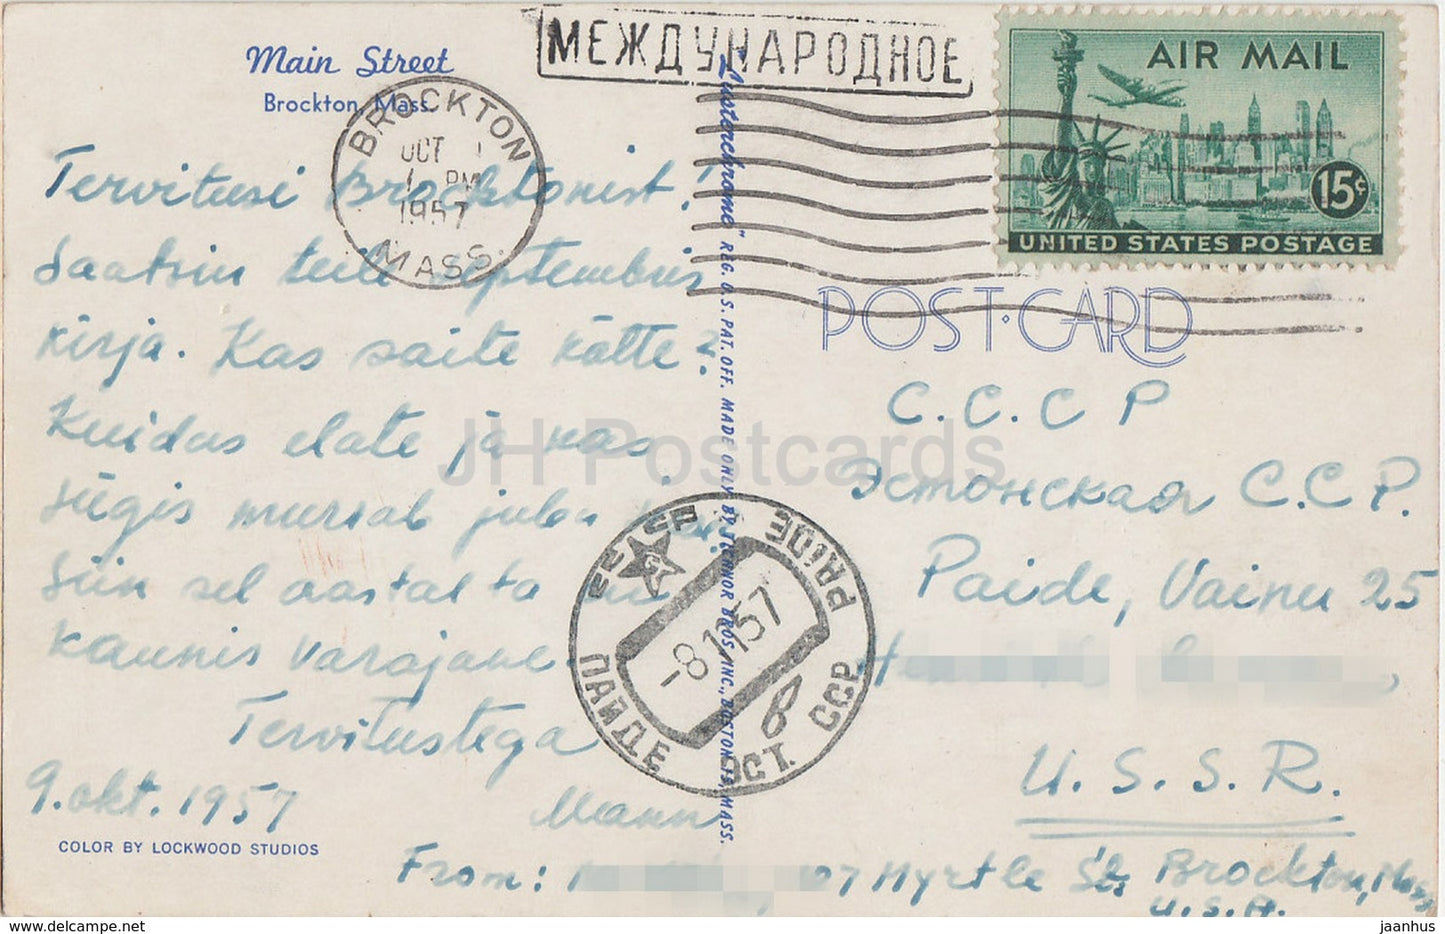 Main Street
Brockton, Mass.
МЕЖДУНАРОДНОЕ
BROCKTON
OCT
PM
1957
MASS.
AIR MAIL
15¢
UNITED STATES POSTAGE
POST·CARD
Tervitusi Brocktonist!
Saatsin teile septembris
kirja. Kas saite kätte?
Kuidas elate ja kas
sügis murrab juba
Siin sel aastal ta
kaunis varajane.
Tervitustega
9. okt. 1957
COLOR BY LOCKWOOD STUDIOS
"Lusterchrome" REG. U.S. PAT. OFF. MADE ONLY BY TICHNOR BROS., INC., BOSTON 15, MASS.
PAIDE
-8 11 57
ПАЙДЕ ЭСТ. ССР
С.С.С Р
Эстонская С.С.Р.
Paide, Vainu 25
U. S. S. R.
From: 07 Myrtle St. Brockton, Mass
U.S.A.
JH Postcards
www.delcampe.net
jaanhus